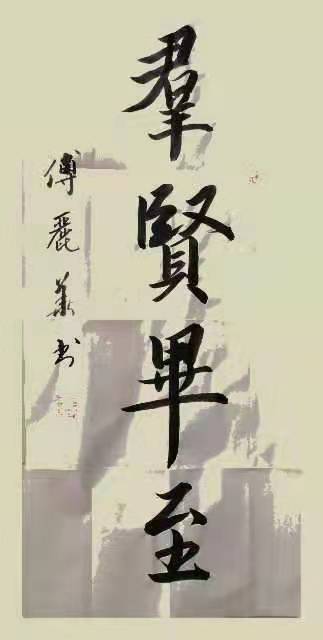 羣賢畢至
傅麗華書